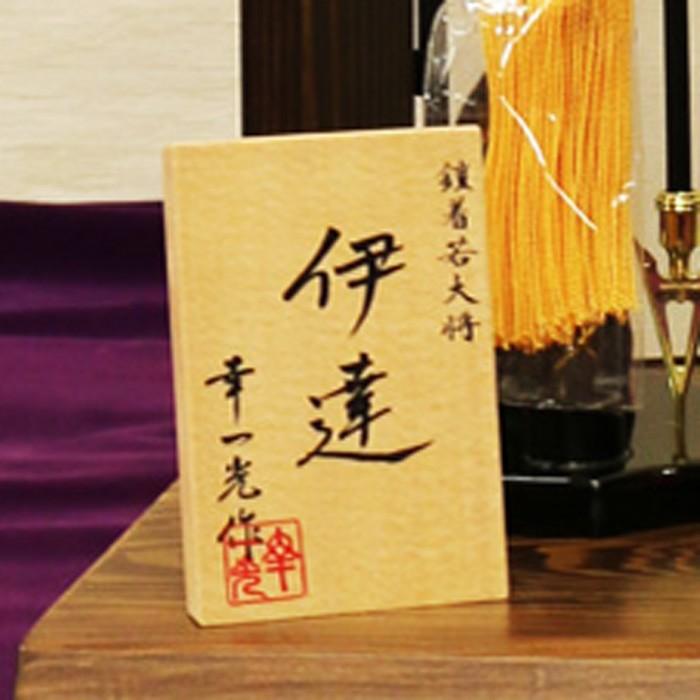 鎧着若大将
伊達
幸一光作
幸一光